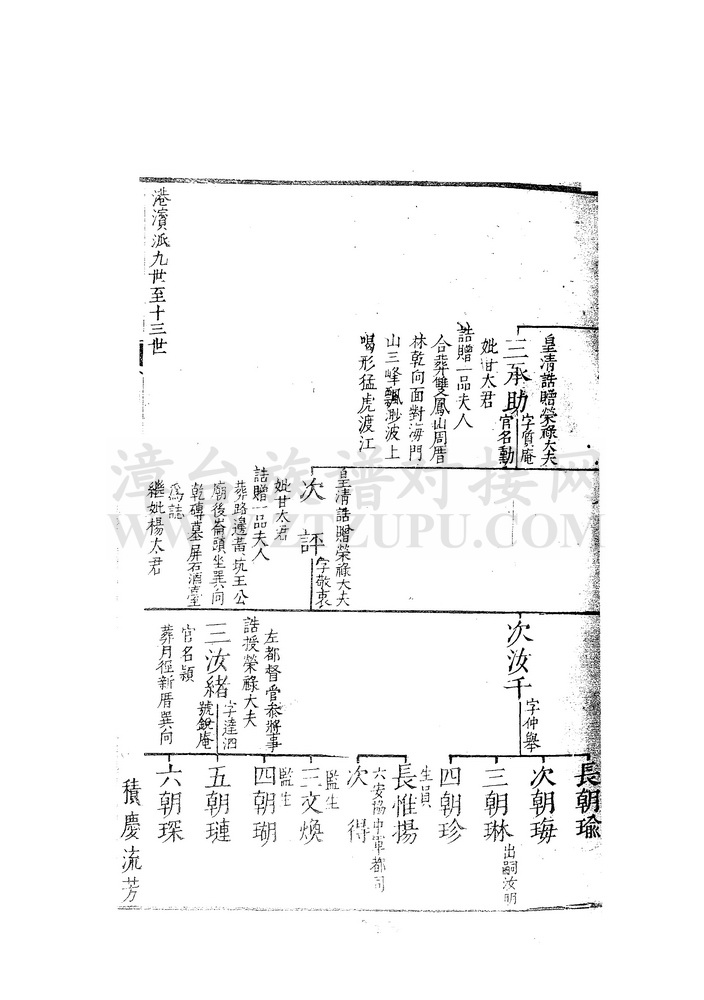 皇清誥贈榮祿大夫
三承助
字質庵
官名勳
妣甘太君
誥贈一品夫人
合葬雙鳳山周厝
林乾向面對海門
山三峰飄渺波上
喝形猛虎渡江
皇清誥贈榮祿大夫
次評
字敬衷
妣甘太君
誥贈一品夫人
葬路邊黃坑王公
廟後崙頭坐巽向
乾磚墓屏石酒臺
為誌
繼妣楊太君
次汝千
字仲舉
左都督管參將事
誥授榮祿大夫
三汝緒
字達泗
號銀庵
官名潁
葬月徑新厝巽向
長朝瑜
次朝瑇
三朝琳
出嗣汝明
四朝珍
生員
長惟揚
六安協中軍都司
次得
監生
三文煥
監生
四朝瑚
五朝璉
六朝琛
港濱派九世至十三世
積慶流芳
漳台族譜對接網
WWW.ZTZUPU.COM